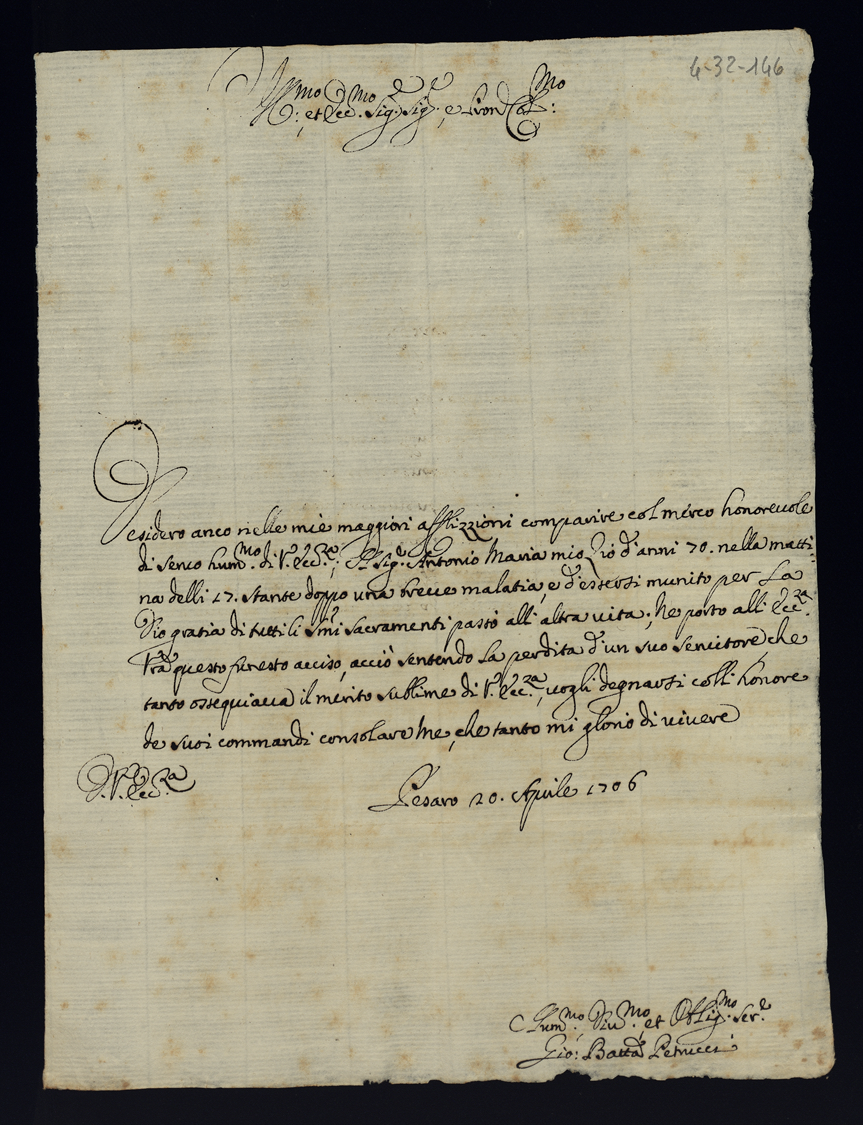 4-32-146
Ill:mo, et Ecc.mo Sig.r Sig.r, e Pron Col:mo
Desidero anco nelle mie maggiori afflizzioni comparire col merco honoreuole
di seruo hum.mo di V. Ecc.za; Il Sig.r Antonio Maria mio Zio d'anni 70. nella matti:
na delli 17. stante doppo una breue malatia, e d'essersi munito per La
Dio gratia di tutti li S.mi sacramenti passò all'altra uita, Ne porto all'Ecc.za
Vra questo funesto auiso, acciò sentendo La perdita d'un suo seruitore, che
tanto ossequiaua il merito sublime di V. Ecc.za, uogli degnarsi colli honore
de suoi commandi consolare Me, che tanto mi glorio di uiuere
D. V. Ecc.za
Pesaro 20. Aprile 1706
Hum.mo, Diu.mo, et Oblig.mo Ser.e
Gio: Batta Petrucci